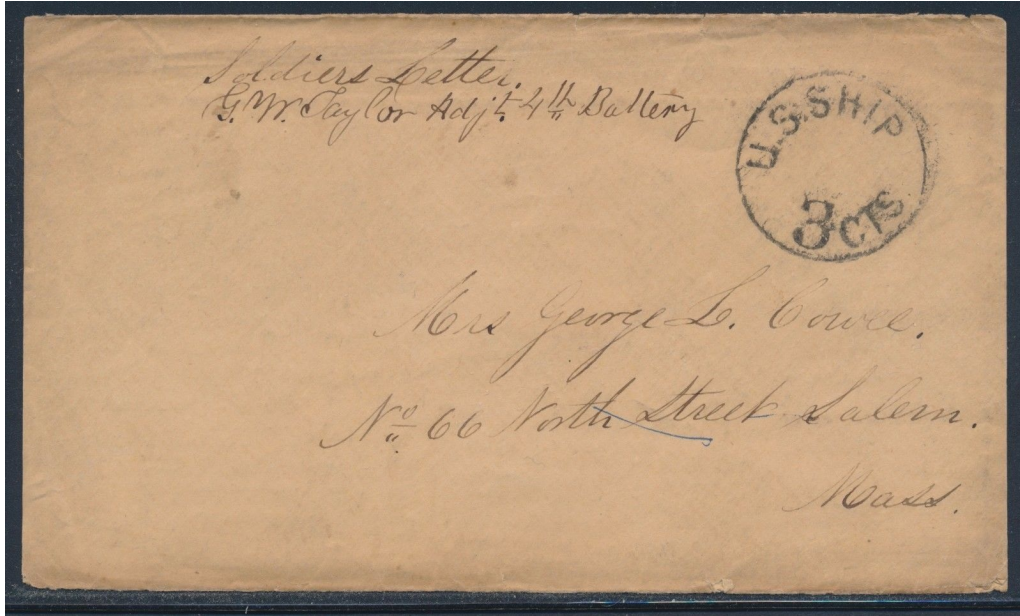 Soldiers Letter.
G. W. Taylor Adjt. 4th Battery
U.S. SHIP
3 CTS
Mrs George L. Cowee.
No 66 North Street Salem.
Mass.